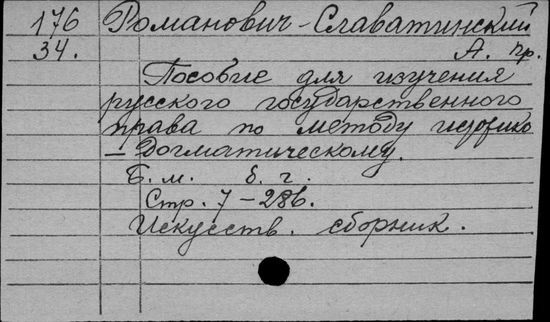 176 Романович-Славатинский
34. А. пр.
Пособие для изучения
русского государственного
права по методу историко
-Догматическому.
Б. м. б. г.
Стр. 7-286.
Искусств. сборник.